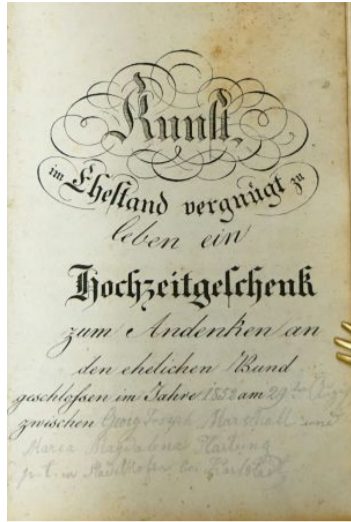 Kunst,
im Ehestand vergnügt zu
leben ein
Hochzeitgeschenk
zum Andenken an
den ehelichen Bund
geschloßen im Jahre 1858 am 29ten
zwischen Georg Joseph Marshall und
Maria Magdalena Hartung
in Stadelhofen bei Karlstadt